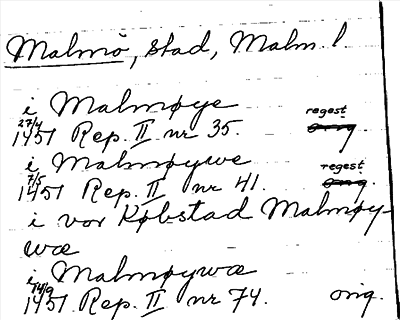 Malmö, stad, Malm. l.
i Malmøye
27/4 1451 Rep. II nr 35. regest orig.
i Malmøywe
7/5 1451 Rep. II nr 41. regest orig.
i vor Købstad Malmøy-
wæ
i Malmøywæ
14/9 1451. Rep. II nr 74. orig.